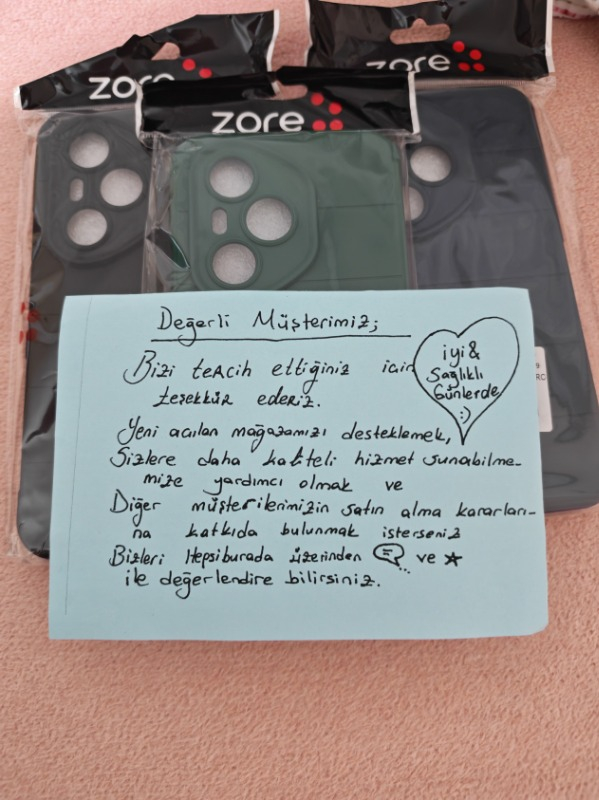 zore
zore
zore
Değerli Müşterimiz;
Bizi tercih ettiğiniz için
teşekkür ederiz.
iyi &
Sağlıklı
Günlerde
:)
Yeni açılan mağazamızı desteklemek,
Sizlere daha kaliteli hizmet sunabilme-
mize yardımcı olmak ve
Diğer müşterilerimizin satın alma kararları-
na katkıda bulunmak isterseniz
Bizleri Hepsiburada üzerinden ve ★
ile değerlendire bilirsiniz.